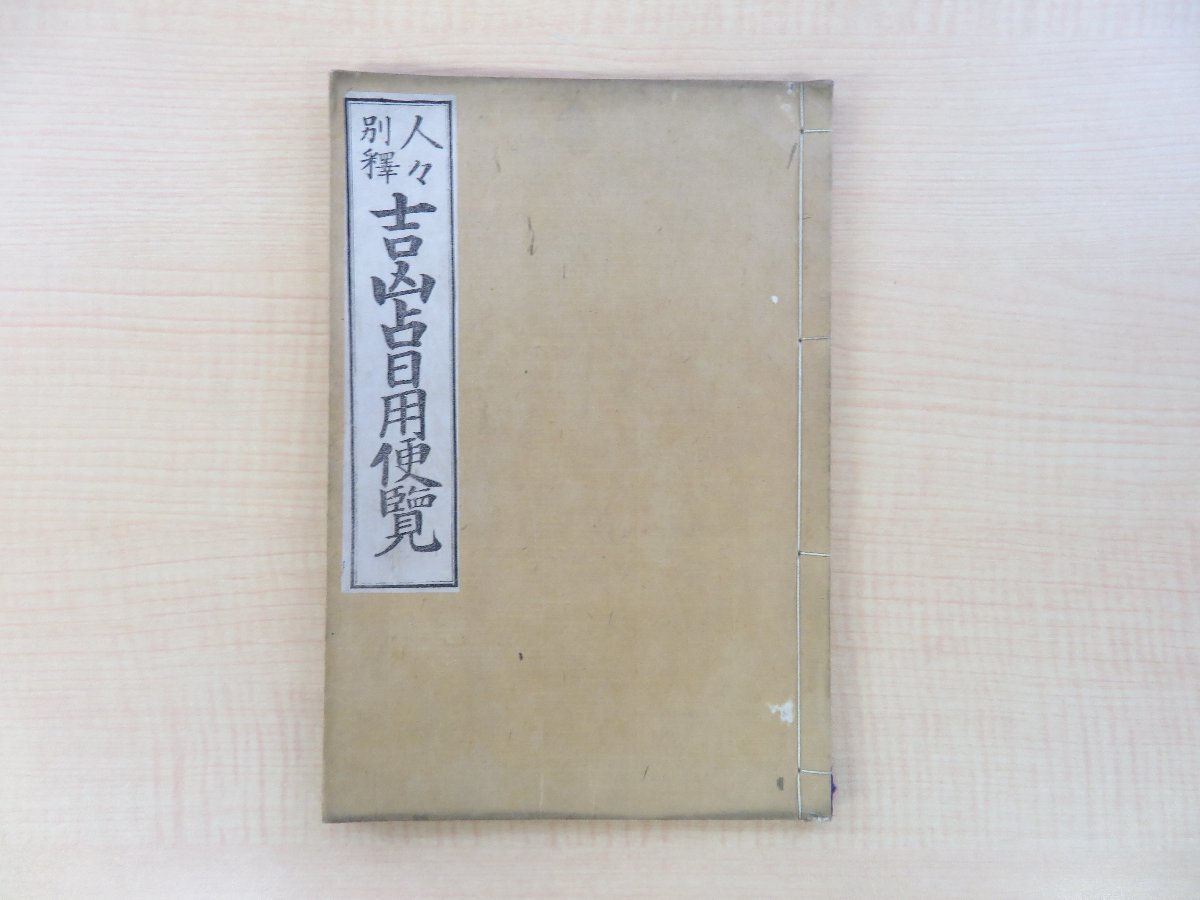 人々
別釋
吉凶占日用便覽